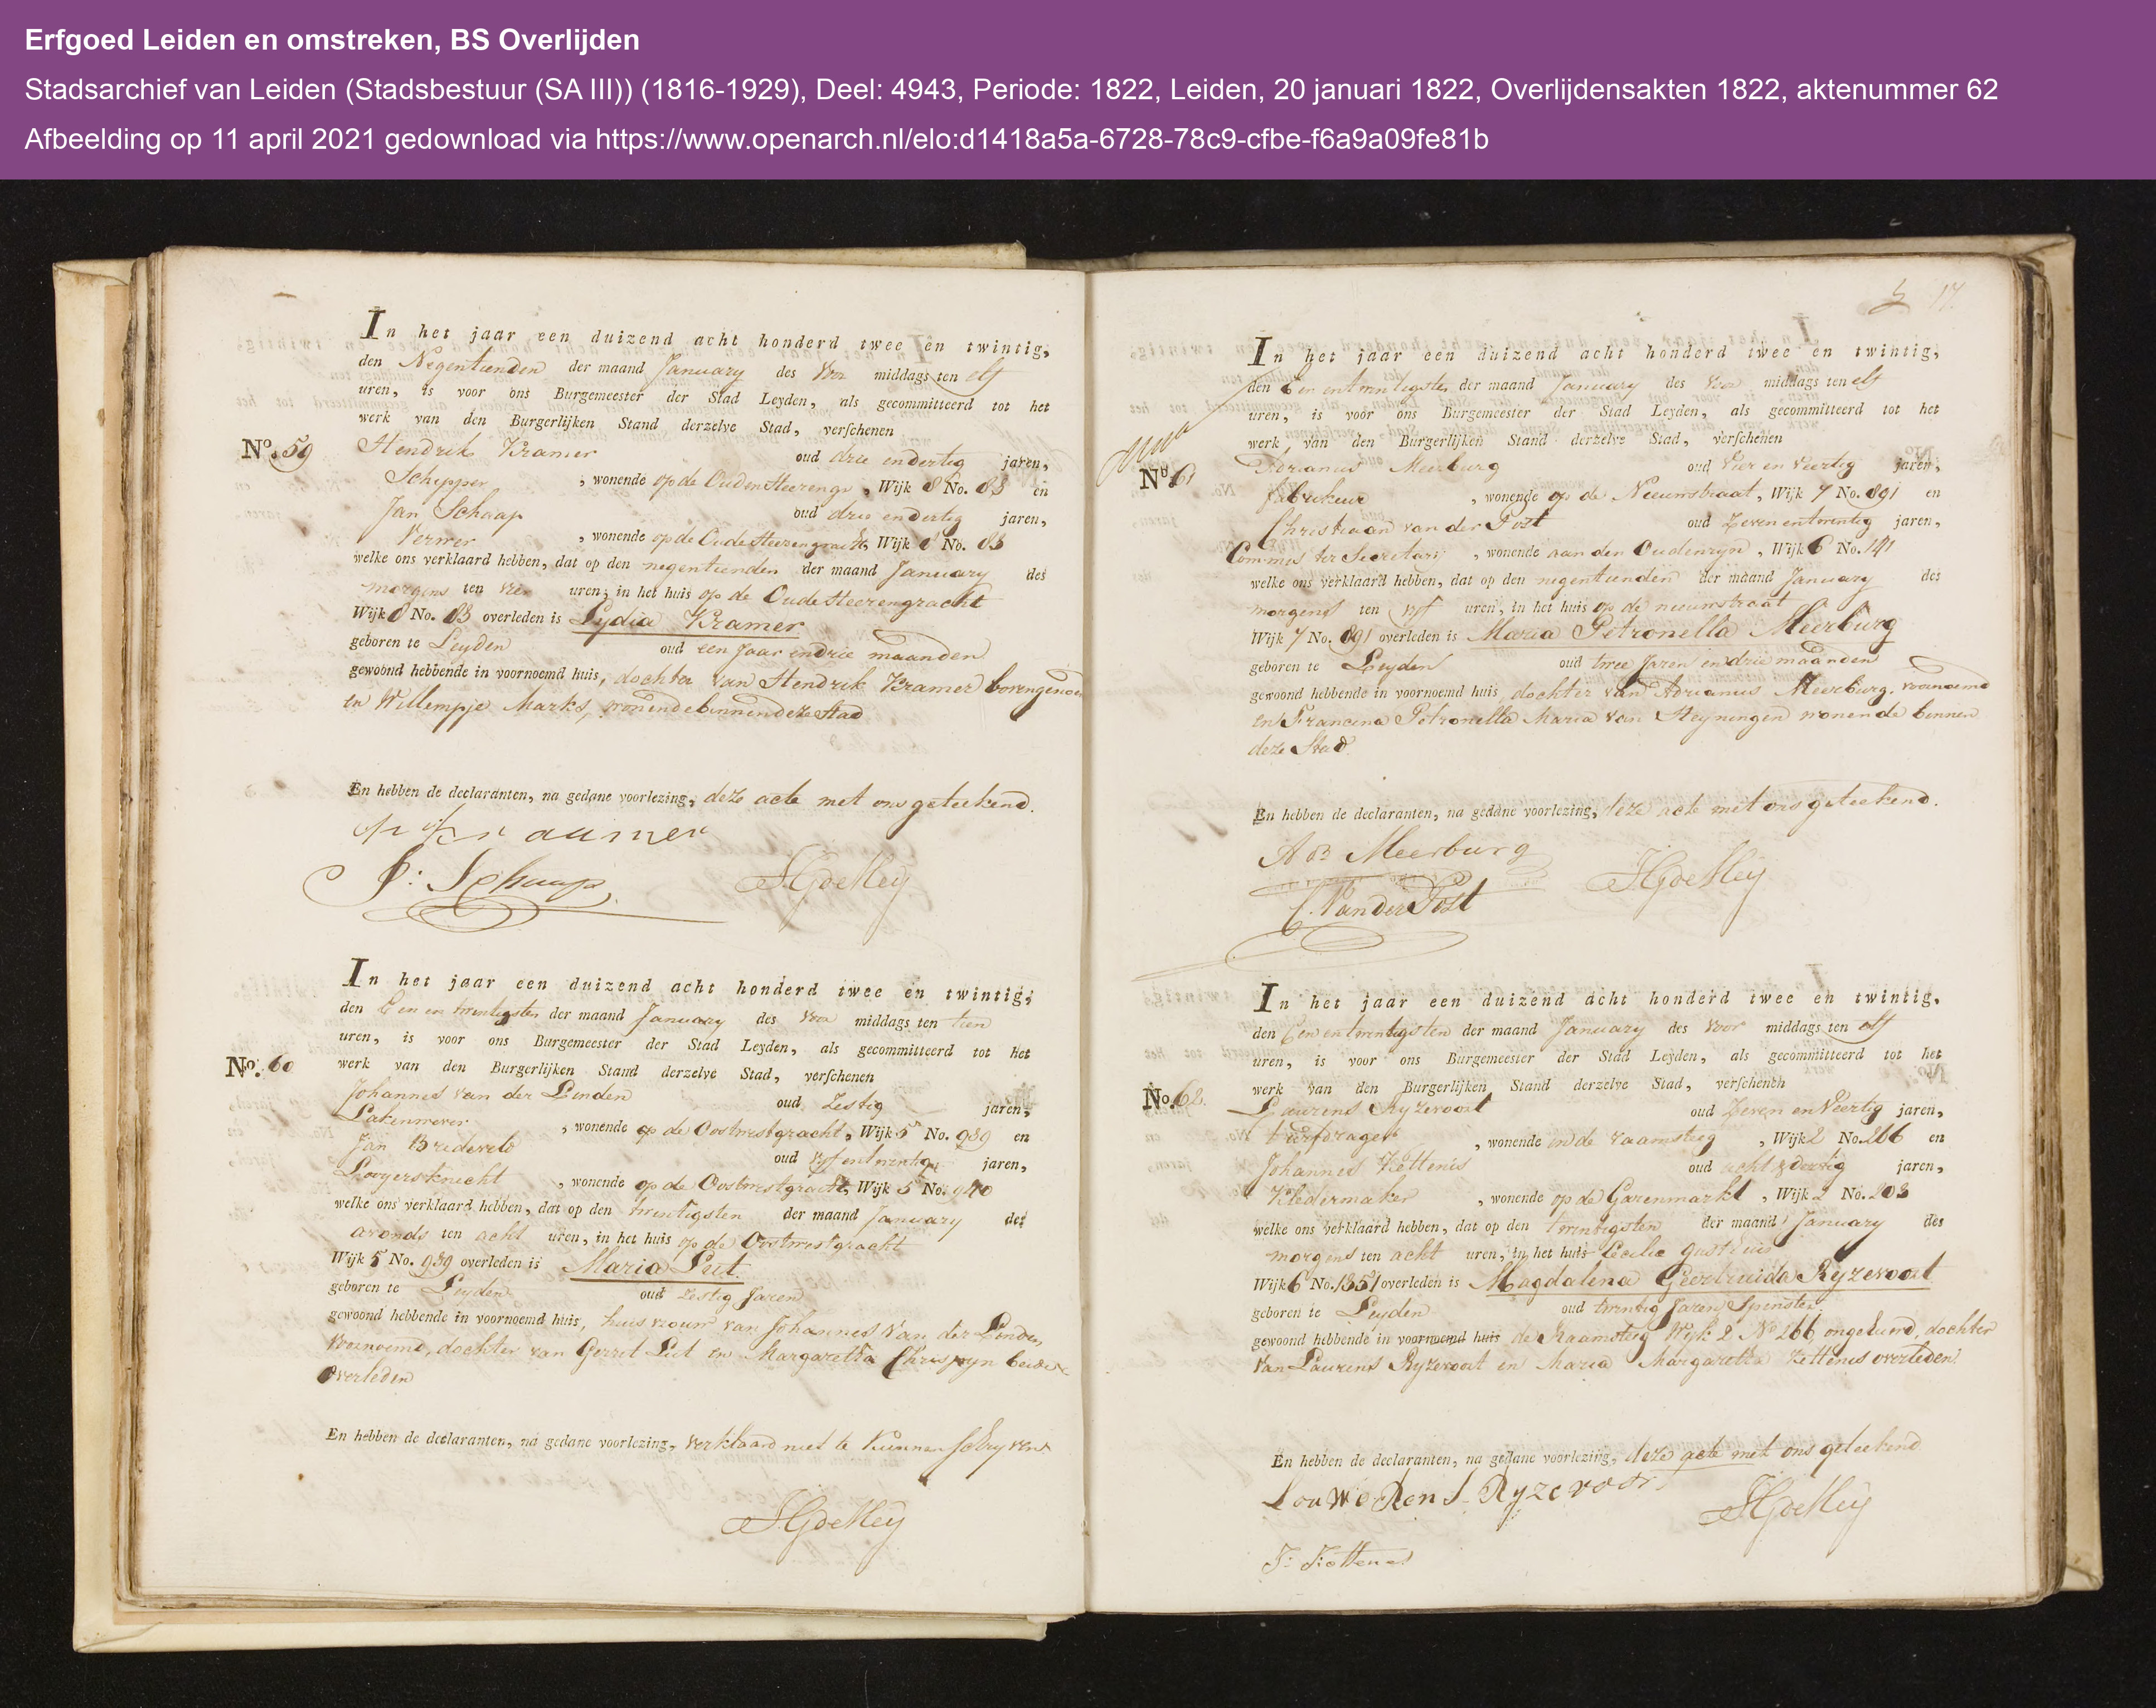 Erfgoed Leiden en omstreken, BS Overlijden
Stadsarchief van Leiden (Stadsbestuur (SA III)) (1816-1929), Deel: 4943, Periode: 1822, Leiden, 20 januari 1822, Overlijdensakten 1822, aktenummer 62
Afbeelding op 11 april 2021 gedownload via https://www.openarch.nl/elo:d1418a5a-6728-78c9-cfbe-f6a9a09fe81b
In het jaar een duizend acht honderd twee en twintig,
den Negentienden der maand January des Voor middags ten elf
uren, is voor ons Burgemeester der Stad Leyden, als gecommitteerd tot het
werk van den Burgerlijken Stand derzelve Stad, verschenen
No. 59 Hendrik Kramer oud drie endertig jaren,
Schipper, wonende op de Ouden Heerengr, Wijk 8 No. 83 en
Jan Schaap oud drie endertig jaren,
Verwer, wonende op de Oude Heerengracht, Wijk 8 No. 83
welke ons verklaard hebben, dat op den negentienden der maand January des
morgens ten vier uren, in het huis op de Oude Heerengracht
Wijk 8 No. 83 overleden is Lydia Kramer
geboren te Leyden oud een Jaar en drie maanden
gewoond hebbende in voornoemd huis, dochter van Hendrik Kramer bovengenoemd
en Willempje Marks, wonende binnen deze Stad
En hebben de declaranten, na gedane voorlezing, deze acte met ons geteekend.
J: Schaap
In het jaar een duizend acht honderd twee en twintig,
den Een en twintigsten der maand January des Voor middags ten tien
uren, is voor ons Burgemeester der Stad Leyden, als gecommitteerd tot het
werk van den Burgerlijken Stand derzelve Stad, verschenen
No. 60 Johannes van der Linden oud Zestig jaren,
Lakenwever, wonende op de Oostwestgracht, Wijk 5 No. 939 en
Jan Bredevelt oud vyf entwintig jaren,
Looyersknecht, wonende op de Oostwestgracht, Wijk 5 No. 940
welke ons verklaard hebben, dat op den twintigsten der maand January des
avonds ten acht uren, in het huis op de Oostwestgracht
Wijk 5 No. 939 overleden is Maria Lut
geboren te Leyden oud Zestig Jaren
gewoond hebbende in voornoemd huis, huisvrouw van Johannes van der Linden,
voornoemd, dochter van Gerrit Lut en Margaretha Chrispyn beide
overleden
En hebben de declaranten, na gedane voorlezing, verklaard niet te kunnen schryven
17
In het jaar een duizend acht honderd twee en twintig,
den Een entwintigsten der maand January des Voor middags ten elf
uren, is voor ons Burgemeester der Stad Leyden, als gecommitteerd tot het
werk van den Burgerlijken Stand derzelve Stad, verschenen
No. 61 Adrianus Meerburg oud Vier en Veertig jaren,
fabrikeur, wonende op de Nieuwstraat, Wijk 7 No. 891 en
Christiaan van der Post oud Zeven entwintig jaren,
Commis ter Secretary, wonende aan den Oudenryn, Wijk 6 No. 141
welke ons verklaard hebben, dat op den negentienden der maand January des
morgens ten vyf uren, in het huis op de nieuwstraat
Wijk 7 No. 891 overleden is Maria Petronella Meerburg
geboren te Leyden oud twee Jaren en drie maanden
gewoond hebbende in voornoemd huis, dochter van Adrianus Meerburg, voornoemd
en Francina Petronella Maria van Heyningen wonende binnen
deze Stad
En hebben de declaranten, na gedane voorlezing, deze acte met ons geteekend.
Meerburg
C. van der Post
In het jaar een duizend acht honderd twee en twintig,
den Een entwintigsten der maand January des Voor middags ten elf
uren, is voor ons Burgemeester der Stad Leyden, als gecommitteerd tot het
werk van den Burgerlijken Stand derzelve Stad, verschenen
No. 62. Laurens Ryzevoort oud Zeven en Veertig jaren,
turfdrager, wonende in de raamsteeg, Wijk 2 No. 266 en
Johannes Kettenis oud acht & dertig jaren,
Kledermaker, wonende op de Garenmarkt, Wijk 2 No. 203
welke ons verklaard hebben, dat op den twintigsten der maand January des
morgens ten acht uren, in het huis Cecilie Gasthuis
Wijk 6 No. 1351 overleden is Magdalena Geertruida Ryzevoort
geboren te Leyden oud twintig Jaren, Spinster
gewoond hebbende in voornoemd huis de Raamsteeg Wyk 2 No 266 ongehuwd, dochter
van Laurens Ryzevoort en Maria Margaretha Kettenis overleden
En hebben de declaranten, na gedane voorlezing, deze acte met ons geteekend
Louwerens Ryzevoort
J: Kottenes